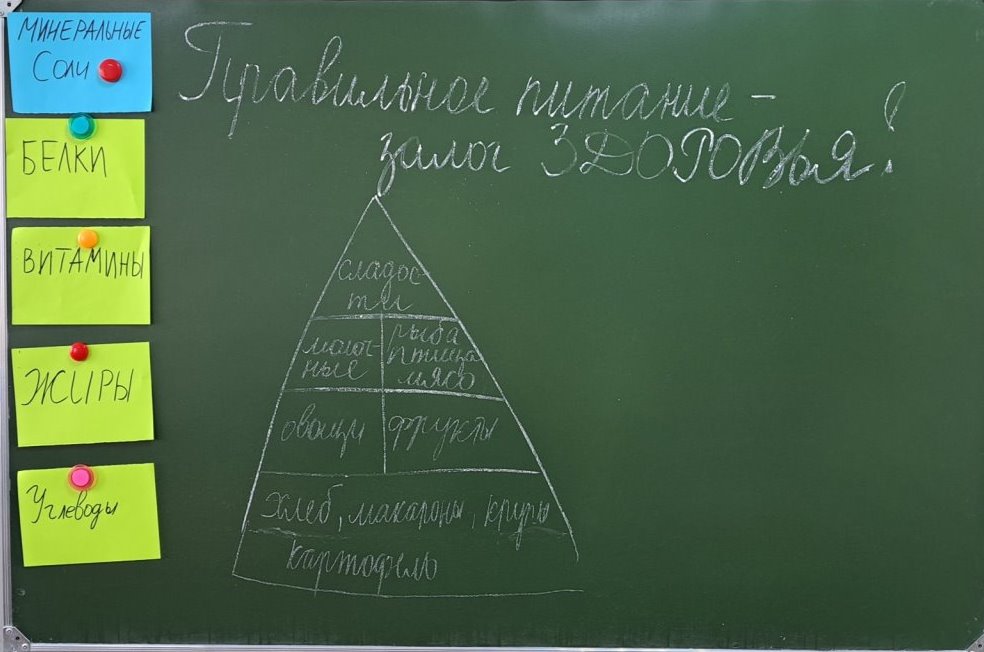 МИНЕРАЛЬНЫЕ
Соли
БЕЛКИ
ВИТАМИНЫ
ЖИРЫ
Углеводы
Правильное питание –
залог ЗДОРОВЬЯ!
сладос-
ти
молоч-
ные
рыба
птица
мясо
овощи
фрукты
хлеб, макароны, крупы
картофель